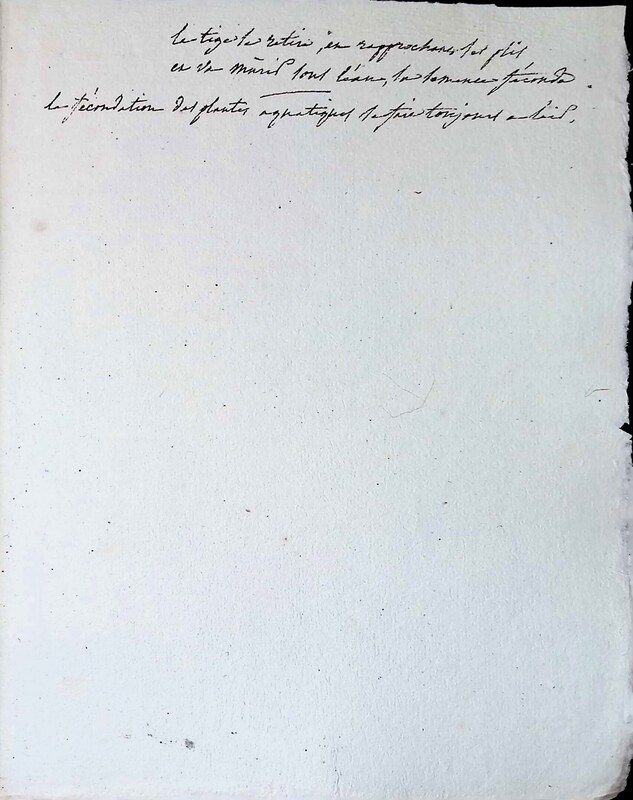 la tige se retire, en rapprochant ses plis
et va mûrir sous l'eau, sa semence féconde
la fécondation des plantes aquatiques se fait toujours a l'air.